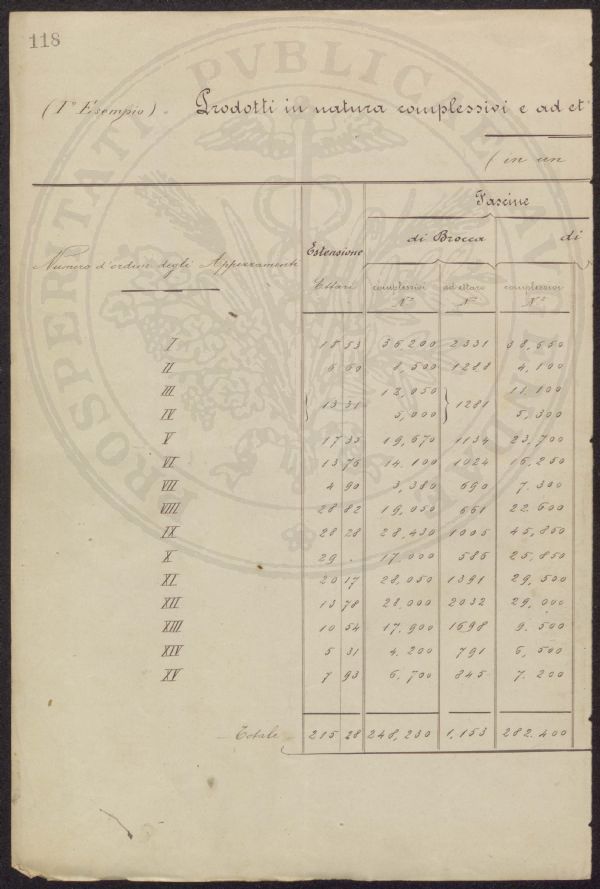 118
(I° Esempio). Prodotti in natura complessivi e ad et
(in un
Numero d'ordine degli Appezzamenti
Estensione
Ettari
Fascine
di Brocca
di
complessivi N°
ad ettaro N°
complessivi N°
I 18 53 36,200 2331 38,650
II 6 60 8,500 1288 4,100
III 13 31 12,050 1281 11.100
IV 5,000 5,300
V 17 35 19,670 1134 23,700
VI 13 76 14.100 1024 16,250
VII 4 90 3,380 690 7.300
VIII 28 82 19,050 661 22.600
IX 28 28 28,430 1005 45,850
X 29 . 17.000 586 25,850
XI 20 17 28,050 1391 29,500
XII 13 78 28,000 2032 29,000
XIII 10 54 17.900 1698 9.500
XIV 5 31 4.200 791 6,500
XV 7 93 6.700 845 7.200
Totale 215 28 248,230 1,153 282.400
PROSPERITATI PVBLICAE